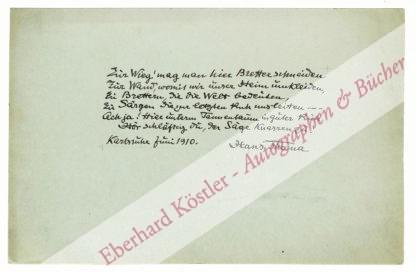 Zur Wieg' mag man hier Bretter schneiden
Zur Wand, womit wir unser Heim umkleiden,
Zu Brettern, die die Welt bedeuten,
Zu Särgen die zur letzten Ruh uns leiten –
Ach ja! Hier unterm Tannenbaum in guter Ruh
Hör schläfrig du, der Säge knarren zu.
Karlsruhe Juni 1910. Hans Thoma
Eberhard Köstler - Autographen & Bücher